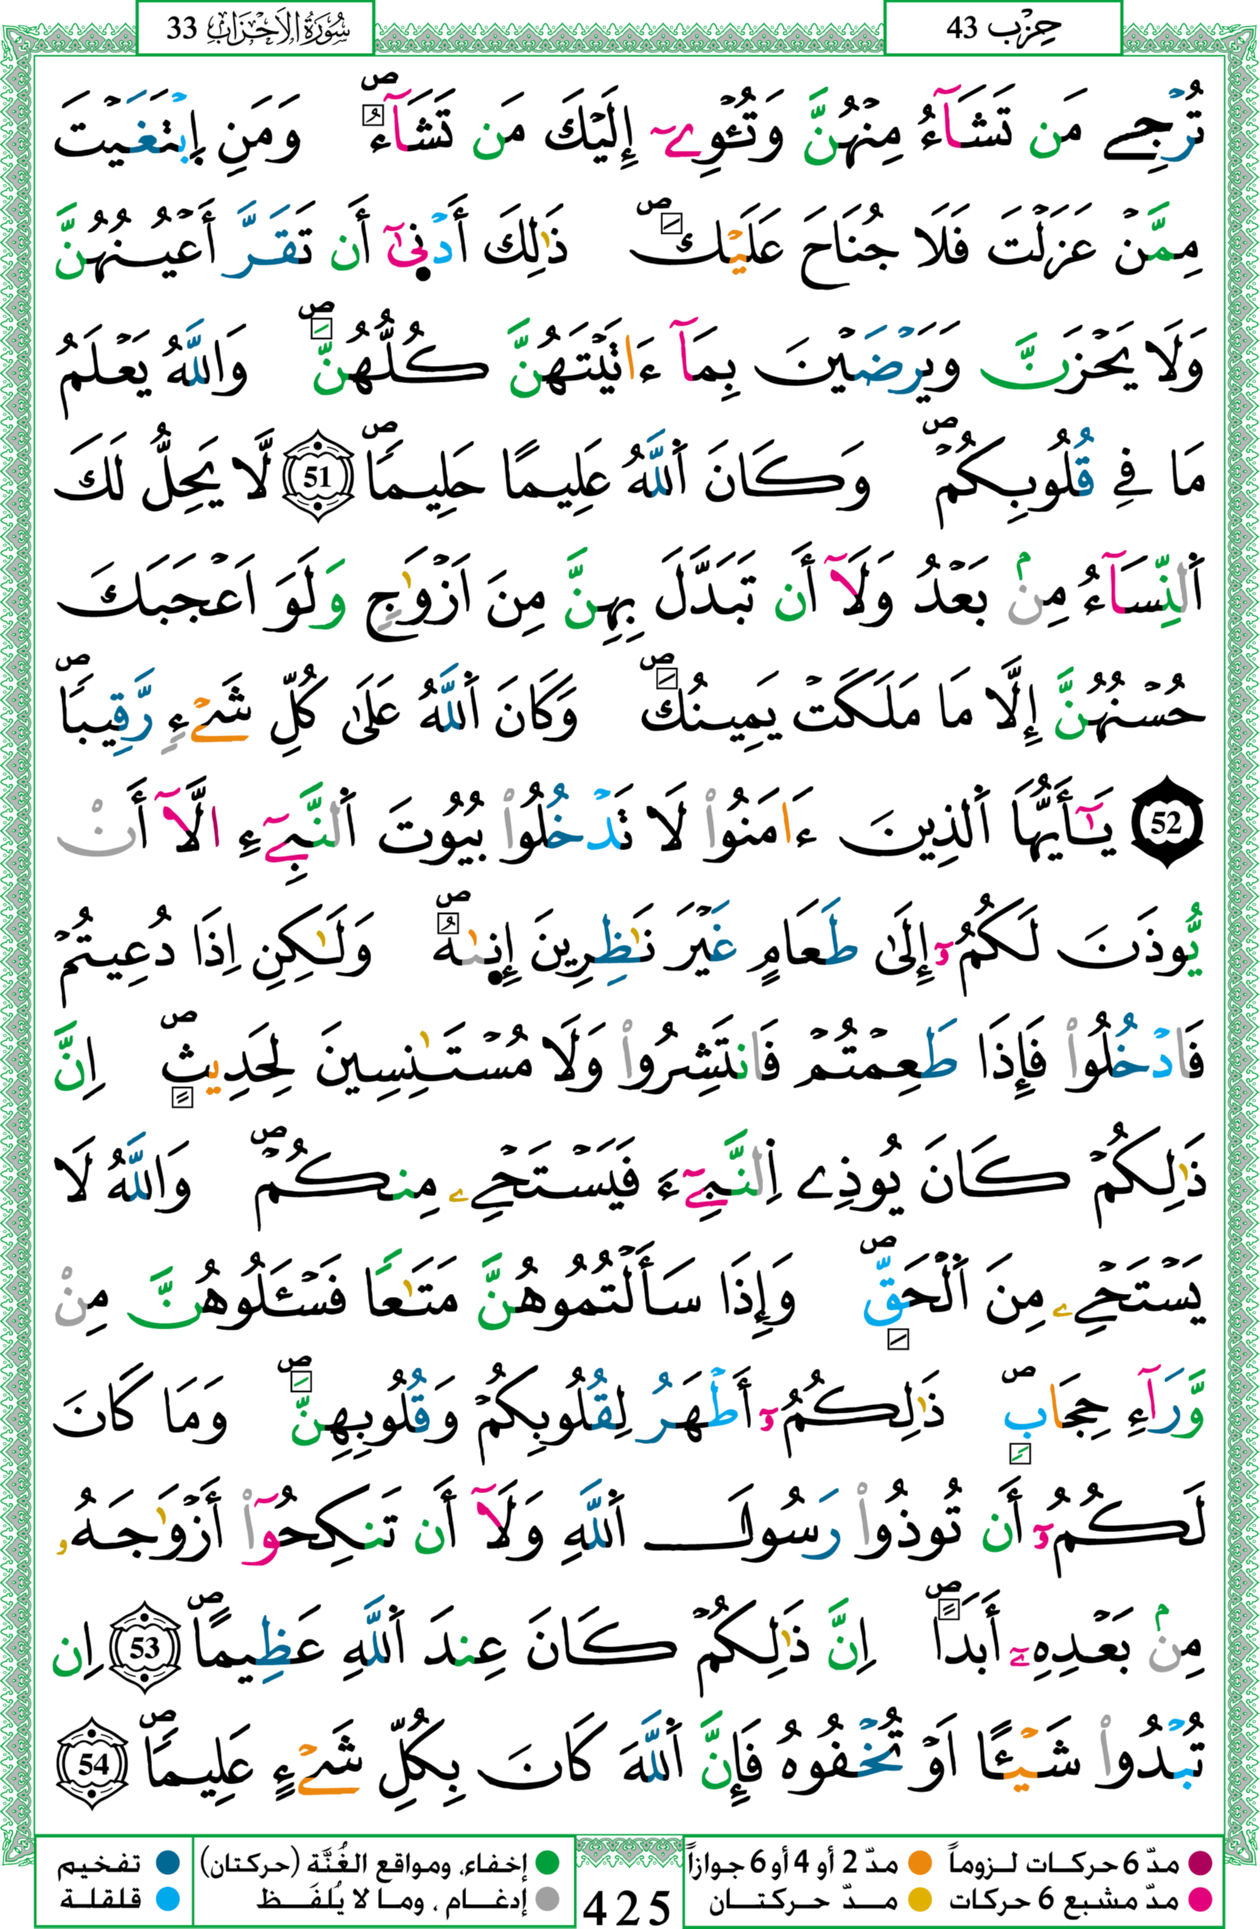 حِزْب 43
سُورَةُ الْأَحْزَاب 33
تُرْجِے مَن تَشَآءُ مِنْهُنَّ وَتُـْٔوِےٓ إِلَيْكَ مَن تَشَآءُ ۖ وَمَنِ اِبْتَغَيْتَ
مِمَّنْ عَزَلْتَ فَلَا جُنَاحَ عَلَيْكَ ۖ ذَٰلِكَ أَدْنَىٰٓ أَن تَقَرَّ أَعْيُنُهُنَّ
وَلَا يَحْزَنَّ وَيَرْضَيْنَ بِمَآ ءَاتَيْتَهُنَّ كُلُّهُنَّ ۖ وَاللَّهُ يَعْلَمُ
مَا فِے قُلُوبِكُمْ ۖ وَكَانَ اَللَّهُ عَلِيمًا حَلِيمًا ۖ 51 لَّا يَحِلُّ لَكَ
اَلنِّسَآءُ مِنۢ بَعْدُ وَلَآ أَن تَبَدَّلَ بِهِنَّ مِنَ اَزْوَٰجٍ وَلَوَ اَعْجَبَكَ
حُسْنُهُنَّ إِلَّا مَا مَلَكَتْ يَمِينُكَ ۖ وَكَانَ اَللَّهُ عَلَىٰ كُلِّ شَےْءٍ رَّقِيبًا ۖ
52 يَـٰٓأَيُّهَا اَلذِينَ ءَامَنُوا۟ لَا تَدْخُلُوا۟ بُيُوتَ اَلنَّبِےٓءِ الَّآ أَنْ
يُّوذَنَ لَكُمُۥٓ إِلَىٰ طَعَامٍ غَيْرَ نَـٰظِرِينَ إِنـٰهُ ۖ وَلَـٰكِنِ اِذَا دُعِيتُمْ
فَادْخُلُوا۟ فَإِذَا طَعِمْتُمْ فَانتَشِرُوا۟ وَلَا مُسْتَـٰنِسِينَ لِحَدِيثٍ ۖ اِنَّ
ذَٰلِكُمْ كَانَ يُوذِے اِلنَّبِےٓءَ فَيَسْتَحْےِۦ مِنكُمْ ۖ وَاللَّهُ لَا
يَسْتَحْےِۦ مِنَ اَلْحَقِّ ۖ وَإِذَا سَأَلْتُمُوهُنَّ مَتَـٰعًا فَسْـَٔلُوهُنَّ مِنْ
وَّرَآءِ حِجَابٍ ۖ ذَٰلِكُمُۥٓ أَطْهَرُ لِقُلُوبِكُمْ وَقُلُوبِهِنَّ ۖ وَمَا كَانَ
لَكُمُۥٓ أَن تُوذُوا۟ رَسُولَ اَللَّهِ وَلَآ أَن تَنكِحُوٓا۟ أَزْوَٰجَهُۥ
مِنۢ بَعْدِهِۦٓ أَبَدًا ۖ اِنَّ ذَٰلِكُمْ كَانَ عِندَ اَللَّهِ عَظِيمًا ۖ 53 اِن
تُبْدُوا۟ شَيْـًٔا اَوْ تُخْفُوهُ فَإِنَّ اَللَّهَ كَانَ بِكُلِّ شَےْءٍ عَلِيمًا ۖ 54
مدّ 6 حركات لـزوماً مدّ 2 أو 4 أو 6 جوازاً
مدّ مشبع 6 حركات مـدّ حركتـان
425
إخفاء، ومواقع الغُنَّة (حركتان) تفخيم
إدغـام ، ومـا لا يُلفَـظ قلقلـة